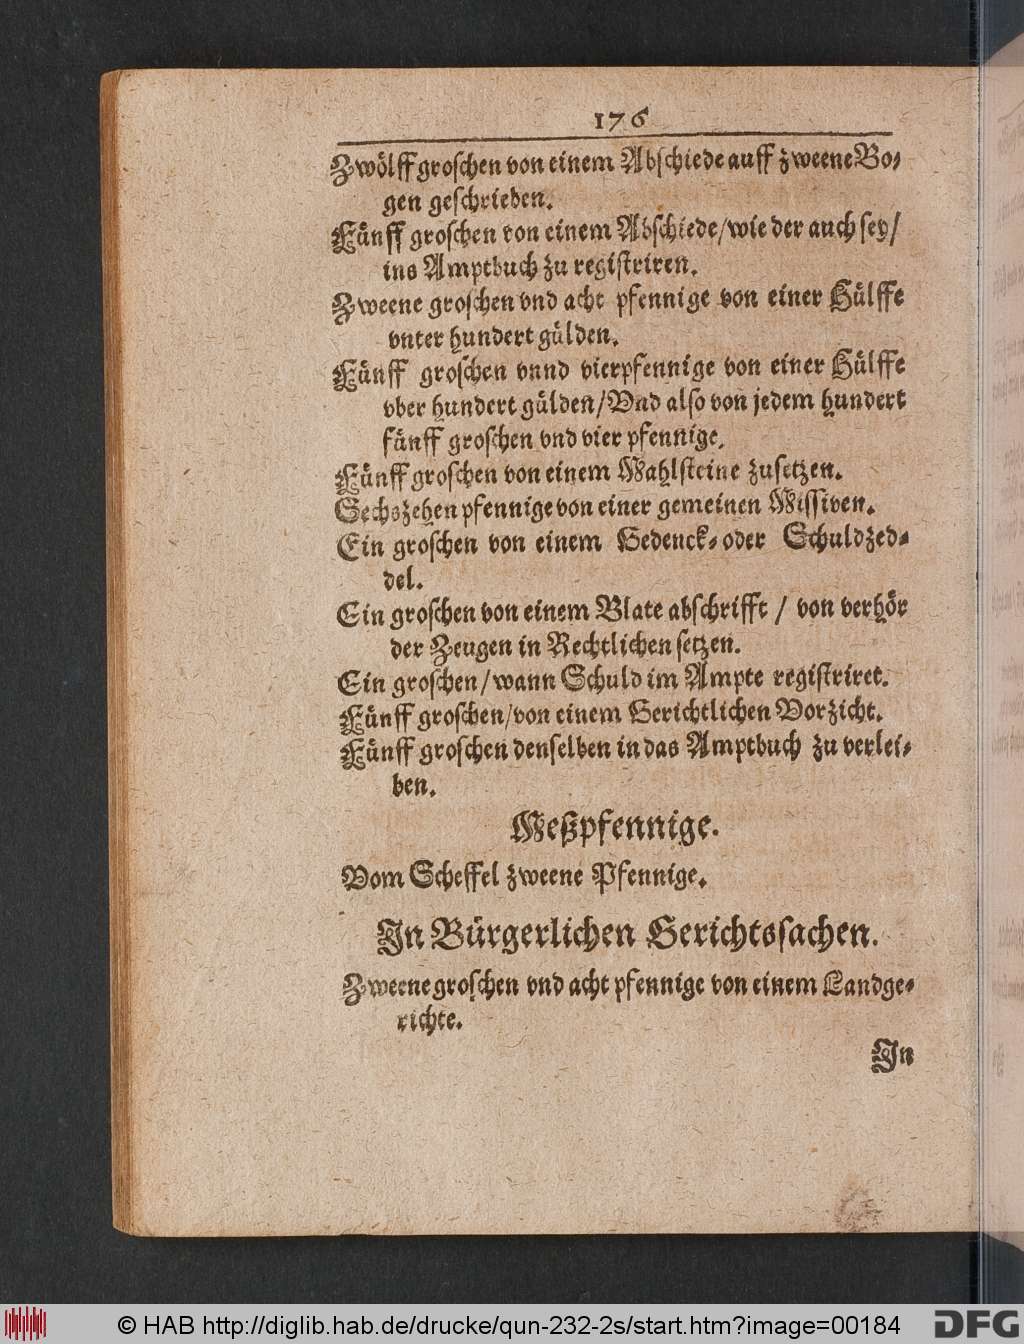 176
Zwölff groschen von einem Abschiede auff zweene Bo-
gen geschrieben.
Fünff groschen von einem Abschiede/wie der auch sey/
ins Amptbuch zu registriren.
Zweene groschen vnd acht pfennige von einer Hülffe
vnter hundert gülden.
Fünff groschen vnnd vierpfennige von einer Hülffe
vber hundert gülden/Vnd also von jedem hundert
fünff groschen vnd vier pfennige.
Fünff groschen von einem Mahlsteine zusetzen.
Sechszehen pfennige von einer gemeinen Missiven.
Ein groschen von einem Gedenck-oder Schuldzed-
del.
Ein groschen von einem Blate abschrifft / von verhör
der Zeugen in Rechtlichen setzen.
Ein groschen/wann Schuld im Ampte registriret.
Fünff groschen/von einem Gerichtlichen Vorzicht.
Fünff groschen denselben in das Amptbuch zu verlei-
ben.
Meßpfennige.
Vom Scheffel zweene Pfennige.
In Bürgerlichen Gerichtssachen.
Zweene groschen vnd acht pfennige von einem Landge-
richte.
In
© HAB http://diglib.hab.de/drucke/qun-232-2s/start.htm?image=00184
DFG